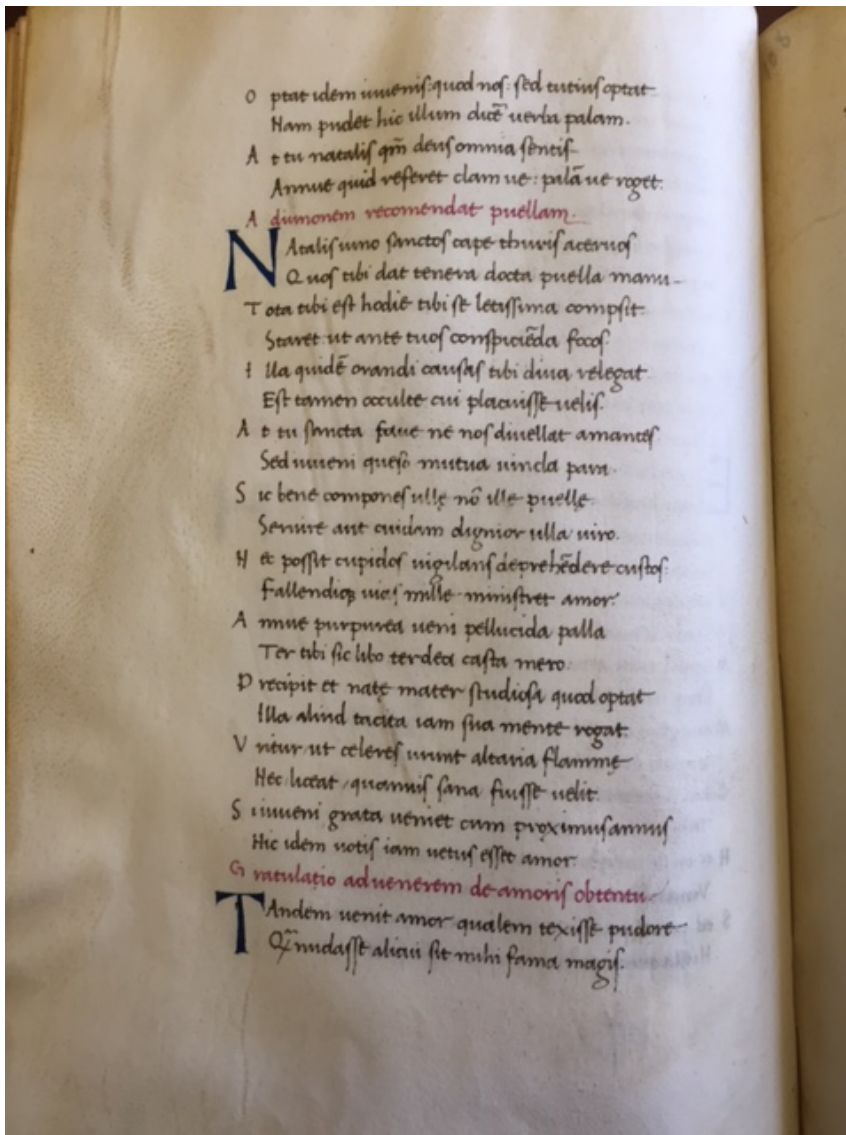 O ptat idem iuuenis: quod nos: sed tutius optat
Nam pudet hic illum dicē uerba palam.
A t tu natalis qm̄ deus omnia sentis
Annue quid referet clam ue: palā ue roget.
A diunonem recomendat puellam.
NAtalis iuno sanctos cape thuris aceruos
Quos tibi dat tenera docta puella manu
T ota tibi est hodie tibi se letissima compsit
Staret ut ante tuos conspiciēda focos
I lla quidē orandi causas tibi diua relegat
Est tamen occulte cui placuisse uelis.
A t tu sancta faue ne nos diuellat amantes
Sed iuueni queso mutua uincla para
S ic bene compones ullę nō ille puellę
Seruire aut cuidam dignior ulla uiro.
N ec possit cupidos uigilans deprehēdere custos
Fallendiq; uias mille ministret amor.
A nnue purpurea ueni pellucida palla
Ter tibi sic libo ter dea casta mero.
P recipit et natę mater studiosa quod optat
Illa aliud tacita iam sua mente rogat.
V ritur ut celeres urunt altaria flammę
Hec liceat, quamuis sana fuisse uelit.
S i iuueni grata ueniet cum proximus annus
Hic idem uotis iam uetus esset amor.
G ratulatio ad uenerem de amoris obtentu
TAndem uenit amor qualem texisse pudore
Qm̄ nudasse alicui sit mihi fama magis.